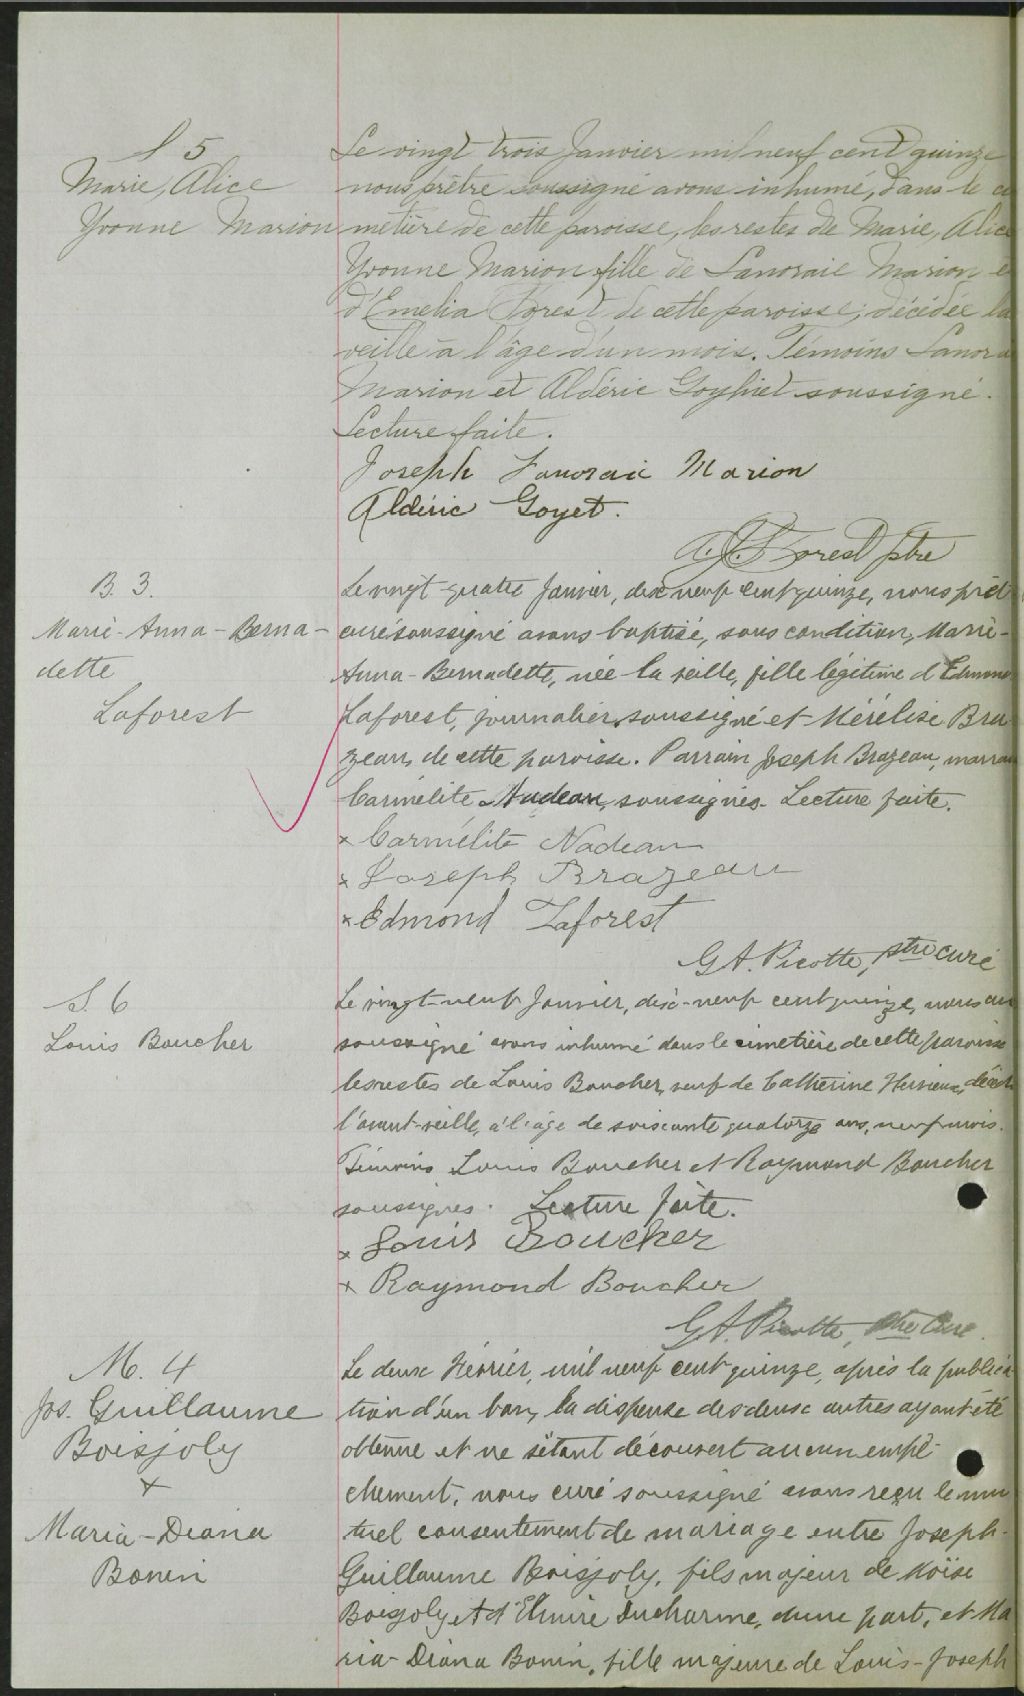 S 5
Marie, Alice
Yvonne Marion
Le vingt trois Janvier mil neuf cent quinze
nous prêtre soussigné avons inhumé, dans le ci
metière de cette paroisse, les restes de Marie, Alice
Yvonne Marion fille de Lanoraie Marion e
d'Emelia Forest de cette paroisse; décédée la
veille à l'âge d'un mois. Témoins Lanorai
Marion et Aldéric soussigné.
Lecture faite.
Joseph Lanoraie Marion
Aldéric Goyet.
Forest ptre
B. 3.
Marie-Anna-Berna-
dette
Laforest
Le vingt-quatre Janvier, dix neuf cent quinze, nous prêt
curé soussigné avons baptisé, sous condition, Marie-
Anna-Bernadette, née la veille, fille légitime d'Edmond
Laforest, journalier, soussigné et Mérélise Bra-
zeau, de cette paroisse. Parrain Joseph Brazeau, marrai
Carmélite Nadeau, soussignés. Lecture faite.
x Carmélite Nadeau
x Joseph Brazeau
x Edmond Laforest
G A. Picotte, ptre curé
S. 6
Louis Boucher
Le vingt-neuf Janvier, dix-neuf cent quinze, nous cu
soussigné avons inhumé dans le cimetière de cette paroisse
les restes de Louis Boucher, veuf de Catherine Hervieux, décédé
l'avant-veille, à l'âge de soixante quatorze ans, neuf mois.
Témoins Louis Boucher et Raymond Boucher
soussignés. Lecture faite.
x Louis Boucher
x Raymond Boucher
G A. Picotte, ptre Curé.
M. 4
Jos. Guillaume
Boisjoly
x
Maria-Diana
Bonin
Le deux Février, mil neuf cent quinze, après la publica-
tion d'un ban, la dispense des deux autres ayant été
obtenue et ne s'étant découvert aucun empê-
chement, nous curé soussigné avons reçu le mu
tuel consentement de mariage entre Joseph-
Guillaume Boisjoly, fils majeur de Moïse
Boisjoly et d'Elmire Ducharme, d'une part, et Ma
ria-Diana Bonin, fille majeure de Louis-Joseph